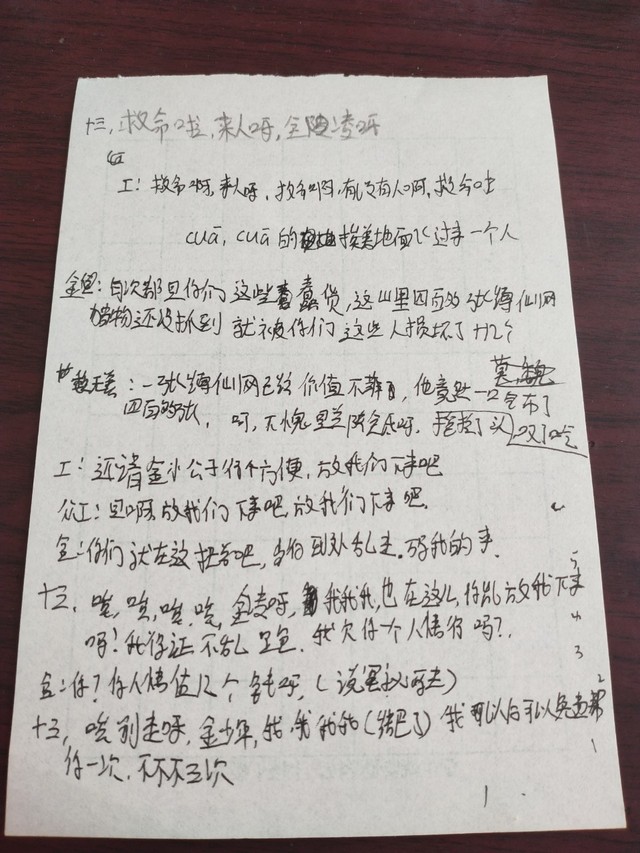 十三，救命啦，来人呀，金陵凌呀
工：救命啊，来人呀，救命啊，有没有人啊，救命吐
cuā，cuā 的 挨着地面飞过来一个人
金：每次都是你们这些蠢货，这山里四百多张缚仙网
猎物还没抓到 就被你们这些人损坏了十几个
一张缚仙网已经价值不菲了，他竟然一口气布了
四百多张，呵，不愧是兰陵金氏呀，
工：还请金小公子行个方便，放我们下来吧
众工：是啊，放我们下来吧，放我们下来吧
金：你们就在这挂着吧，省的到处乱走，碍我的事
十三，唉，唉，唉，唉，金凌呀，我我我，也在这儿，你能放我下来
吗？我保证不乱，我欠你一个人情行吗？
金：你？你人情值几个钱呀，（说罢
十三，唉别走呀，金少年，我我我我 我可以后可以免费帮
你一次，不不不三次
5
4
3
2
1